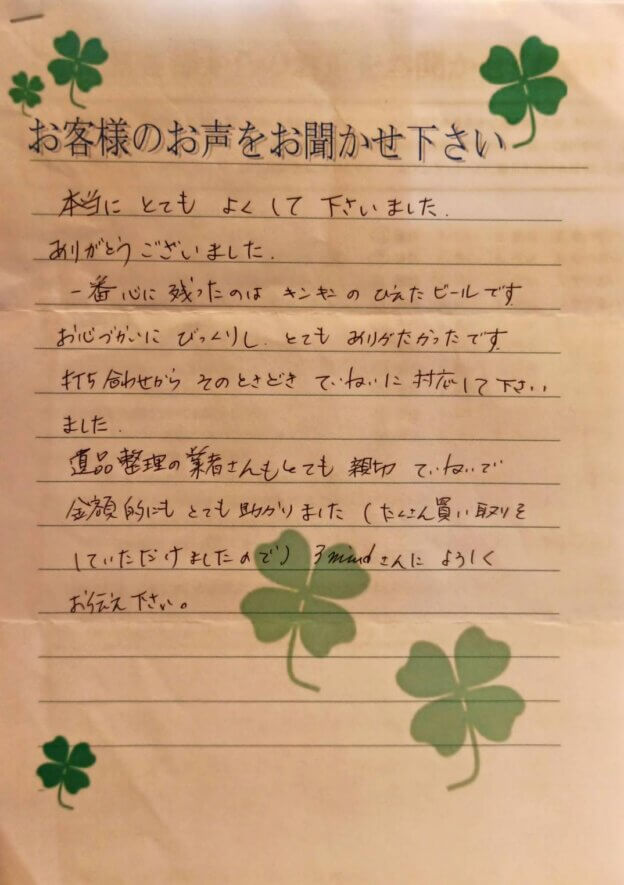 お客様のお声をお聞かせ下さい
本当に とても よくして 下さいました.
ありがとうございました.
一番心に 残ったのは キンキンの ひえたビールです
お心づかいに びっくりし. とても ありがたかったです
打ち合わせから そのときどき ていねいに 対応して下さい
ました.
遺品整理の業者さんもとても 親切 ていねいで
金額的にも とても助かりました (たくさん買い取りを
していただけましたので) 3mindさんに よろしく
お伝え下さい。